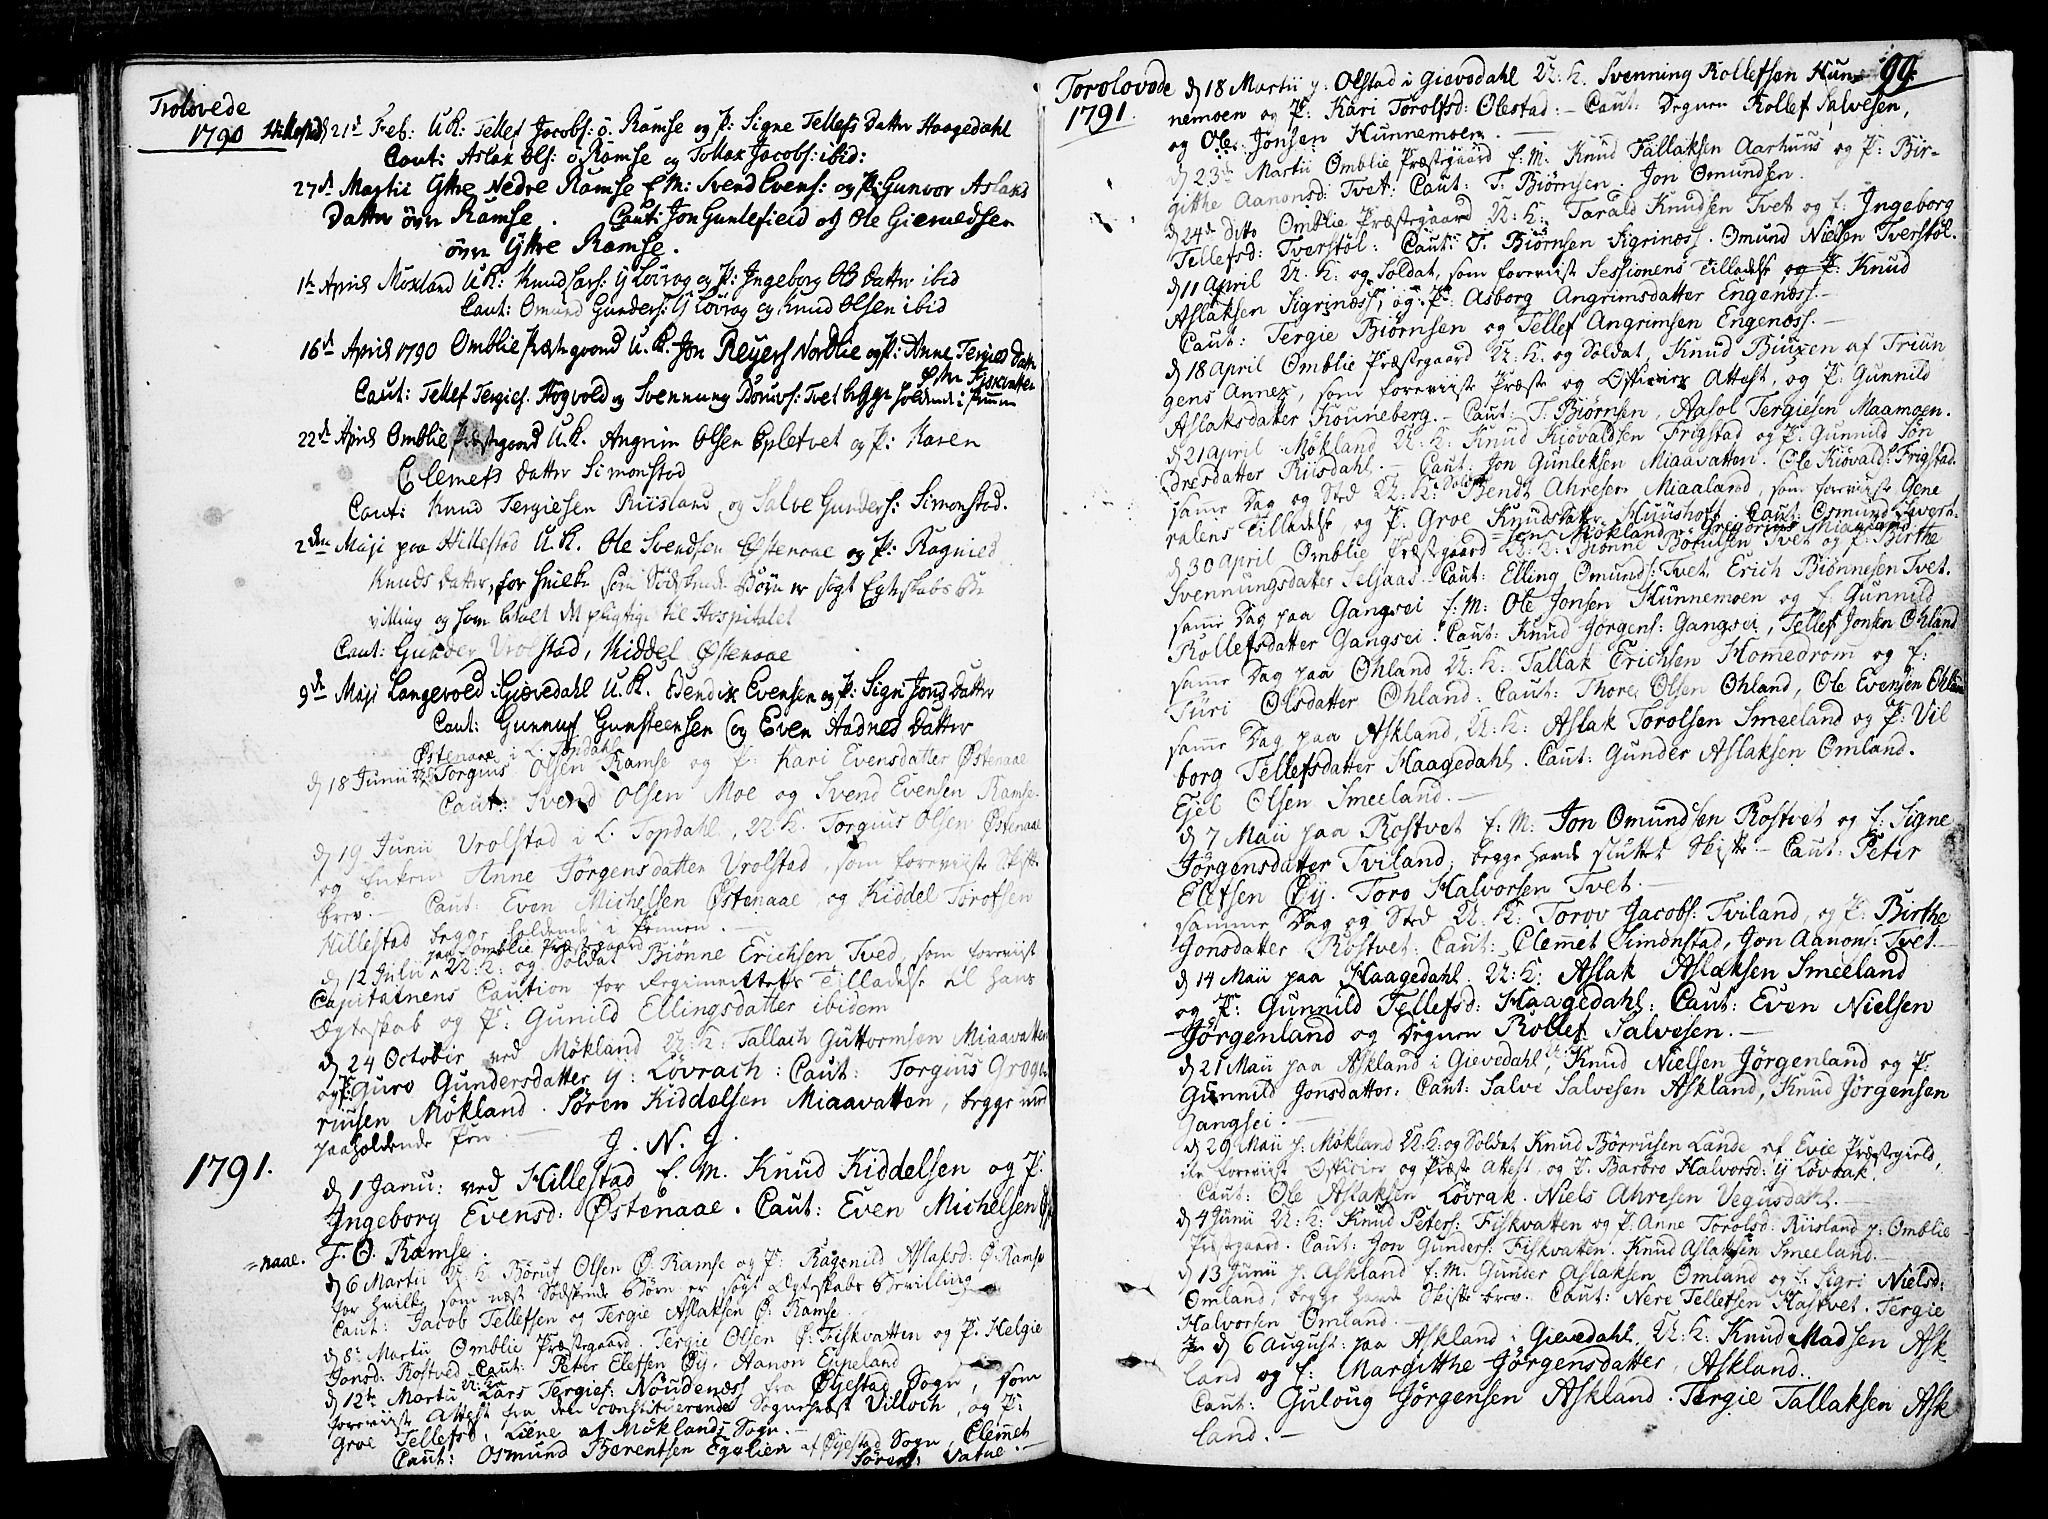 Trolovede
1790 Hillestad 21d Feb: U.K: Tellef Jacobs: ö. Ramse og P: Signe Tellefs Datter Haagedahl
Caut: Aslax Ols: ö Ramse og Tollax Jacobs: ibid:
27d Martii Ytre Nedre Ramse E.M: Svend Evens: og P: Gunvor Aslaks
Datter övre Ramse. Caut: Jon Gunlefieid og Ole Giermedsen
övre Ytre Ramse.
1te April Moxland U.K: Knud Lars: Y Lövrag og P: Ingeborg Ols Datter ibid
Caut: Omund Gunders: Y Lövrag og Knud Olsen ibid
16d April 1790 Omblie Præstgaard U.K. Jon Reyers Nordlie og P: Anne Tergies Datter
Østre Fiskvatten
Caut: Tellef Tergies. Hogvold og Svennung Bönus: Tvet begge holdende i Pennen
22d April Omblie Præstgaard U.K. Angrim Olsen Opletvet og P: Karen
Clemets Datter Simonstad
Caut: Knud Tergiesen Riisland og Salve Gunders: Simonstad.
2den Maji paa Hillestad U.K. Ole Svendsen Østenaae og P: Ragnild
Knuds Datter, for hvilke som Södskende Börn er sögt Egteskabs Be
villing og som betalt det pligtige til Hospitalet
Caut: Gunder Vrolstad, Kiddel Østenaae
9d Maji Langevold i Giævedahl U.K. Bendix Evensen og P: Signi Jons Datter
Caut: Gunnuf Gunsteensen og Even Aadnes Datter
Østenaae i L. Topdahl
d 18 Junii U.K. Torgius Olsen Ramse og P: Kari Evensdatter Østenaae
Caut: Svend Olsen Moe og Svend Evensen Ramse.
d 19 Junii Vrolstad i L. Topdahl, U.K. Torgius Olsen Østenaae
og Enken Anne Jörgensdatter Vrolstad, som foreviiste Skifte
brev. Caut: Even Michelsen Østenaae, og Kiddel Torofsen
Killestad begge holdende i Pennen.
paa Omblie Præstegaard
d 12 Julii U:K: og Soldat Biönne Erichsen Tved, som foreviist
Capitainens Caution for Regimentets Tilladelse til hans
Ægteskab og P: Gunild Ellingsdatter ibidem
d 24 Octobir ved Mökland U:K: Tallach Guttormsen Miaavatten
og P: Guro Gundersdatter Y: Lövrach: Caut: Torgius Grego
riusen Mökland. Sören Kiddelsen Miaavatten, begge med
paaholdende Pen.
J. N. J.
1791.
d 1 Janu: ved Hillestad E. M. Knud Kiddelsen og P.
Ingeborg Evensd: Østenaae. Caut: Even Michelsen Øste
=naae. T. O. Ramse.
d 6 Martii U.K. Börut Olsen Ø. Ramse og P: Ragenild Aslaksd: Ø. Ramse
for hvilke som næst Södskende Börn er sögt Ægteskabs Bevilling
Caut: Jacob Tellefsen og Tergie Aslaksen Ø. Ramse.
d 8: Martii Omblie Præstegaard. Tergie Olsen Ø: Fiskvatten og P. Helgie
Jonsd: Rostved. Caut: Peter Elefsen Øy. Aanon Eppeland
d 12te Martii U:K: Lars Tergies: Noudenæss fra Øyestad Sogn, som
foreviiste Attest fra den constituerende Sognepræst Villoch, og P:
Groe Tellefsd: Liene af Möklands Sogn.
Caut: Osmund Berentsen Egelien af Øyestad Sogn, Clemet
Sörens: Vatne.
Torolovede
1791.
99.
d 18 Martii p: Olstad i Gievedahl U.K. Svenning Rollefsen Hun-
nemoen og P: Kari Torolfsd: Olestad: - Caut: Degnen Rollef Salvesen,
og Ole Jonsen Hunnemoen.
d 23de Martii Omblie Præstegaard E: M: Knud Tallaksen Aarhuus og P: Bir-
githe Aanonsd: Tvet: Caut: T. Biörnsen. Jon Omundsen.
d 24de Ditto Omblie Præstegaard U: K: Tarald Knudsen Tvet og E: Ingeborg
Tellefsd: Tverstöl: Caut: T. Biörnsen Sigrinæss. Omund Nielsen Tverstöl.
d 11 April U: K: og Soldat, som foreviist Sessionens Tilladelse og P: Knud
Aslaksen Sigrinæss, og P: Asborg Angrimsdatter Engenæss.
Caut: Tergie Biörnsen og Tellef Angrimsen Engenæss.
d 18 April Omblie Præstegaard U: K. og Soldat, Knud Biuxen af Triun
gens Annex, som foreviiste Præste og Officier Attest, og P: Gunnild
Aslaksdatter Kouneberg. Caut: T: Biörnsen, Aasol Tergiesen Maamoen.
d 21 April Mökland U: K: Knud Kiövaldsen Frigstad og P: Gunnild Sön
dresdatter Riisdahl. Caut: Jon Gunleksen Miaavatten. Ole Kiövalds: Frigstad.
samme Dag og Sted U: K: Soldat Bendt Ahresen Miaaland, som foreviiste Gene
ralens Tilladelse og P: Groe Knudsdatter Huushoft. Caut: Osmund Sivert-
=sens Mökland. Gregorius Miaaland
d 30 April Omblie Præstegaard U: K: Biönne Börulsen Tvet og P: Birthe
Svennungsdatter Seljaas. Caut: Elling Omunds: Tvet. Erich Biönnesen Tvet.
samme Dag paa Gangsei E: M: Ole Jonsen Hunnemoen og E: Gunnild
Rollefsdatter Gangsei. Caut: Knud Jörgens: Gangsei, Tellef Jonsen Ohland
samme Dag paa Ohland U: K: Tallak Erichsen Homedrom og E:
Turi Olsdatter Ohland: Caut: Thore Olsen Ohland, Ole Evensen Ohland
samme Dag paa Askland, U: K: Aslak Torolsen Smeeland og P: Vil
borg Tellefsdatter Haagedahl. Caut: Gunder Aslaksen Omland.
Ejel Olsen Smeeland.
d 7 Maii paa Rostvet E: M: Jon Omundsen Rostvet og E: Signe
Jörgensdatter Tviland, begge havde sluttet Skifte. Caut: Peter
Elefsen Øy. Toro Halvorsen Tvet.
samme Dag og Sted U: K: Torov Jacobs: Tviland, og P: Birthe
Jonsdatter Rostvet. Caut: Clemmet Simonstad, Jon Aanons: Tvet.
d 14 Maii paa Haagedahl. U: K: Aslak Aslaksen Smeeland
og P: Gunnild Tellefsd: Haagedahl: Caut: Even Nielsen
Jörgenland og Degnen Rollef Salvesen.
d 21 Maii paa Askland i Gievedahl, Knud Nielsen Jörgenland og P:
Gunnild Jonsdatter: Caut: Salve Salvesen Askland, Knud Jörgensen
Gangsei.
d 29 Maii p. Mökland U: K: og Soldat Knud Börrusen Lande af Evie Præstegield,
ste foreviiste Officier og Præste Attest og P. Barbro Halvorsd: Y Lövrak.
Caut: Ole Aslaksen Lövrak. Niels Ahresen Vegusdahl.
d 4 Junii U: K: Knud Peters: Fiskvatten og P: Anne Torolsd: Riisland p: Omblie
Præstgaard. Caut: Jon Gunders: Fiskvatten. Knud Aslaksen Smeeland.
d 13 Junii p. Askland E: M. Gunder Aslaksen Omland og E. Sigri Nielsd:
Omland, begge havde Skifte brev. Caut: Nere Tellefsen Hastvet. Tergie
Halvorsen Omland.
d 6 August: paa Askland i Gievedahl, U: K: Knud Madsen Ask-
land og E: Margitthe Jörgensdatter, Askland.
Caut: Guloug Jörgensen Askland. Tergie Tallaksen Ask
land.